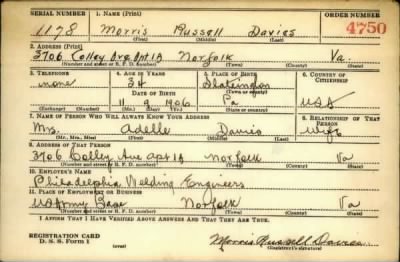 SERIAL NUMBER 1. NAME (Print) ORDER NUMBER
1178 Morris Russell Davies 4750
(First) (Middle) (Last)
2. ADDRESS (Print)
3706 Colley Ave Apt 1A Norfolk Va.
(Number and street or R. F. D. number) (Town) (County) (State)
3. TELEPHONE 4. AGE IN YEARS 5. PLACE OF BIRTH 6. COUNTRY OF CITIZENSHIP
none 34 Slatington
DATE OF BIRTH
11 9 1906 Pa USA
(Exchange) (Number) (Mo.) (Day) (Yr.) (State or country)
7. NAME OF PERSON WHO WILL ALWAYS KNOW YOUR ADDRESS 8. RELATIONSHIP OF THAT PERSON
Mrs. Adelle Davies wife
(Mr., Mrs., Miss) (First) (Middle) (Last)
9. ADDRESS OF THAT PERSON
3706 Colley Ave apt 1A Norfolk Va
(Number and street or R. F. D. number) (Town) (County) (State)
10. EMPLOYER'S NAME
Philadelphia Welding Engineers
11. PLACE OF EMPLOYMENT OR BUSINESS
US Army Base Norfolk Va
(Number and street or R. F. D. number) (Town) (County) (State)
I AFFIRM THAT I HAVE VERIFIED ABOVE ANSWERS AND THAT THEY ARE TRUE.
REGISTRATION CARD
D. S. S. Form 1 (over) Morris Russell Davies
(Registrant's signature)